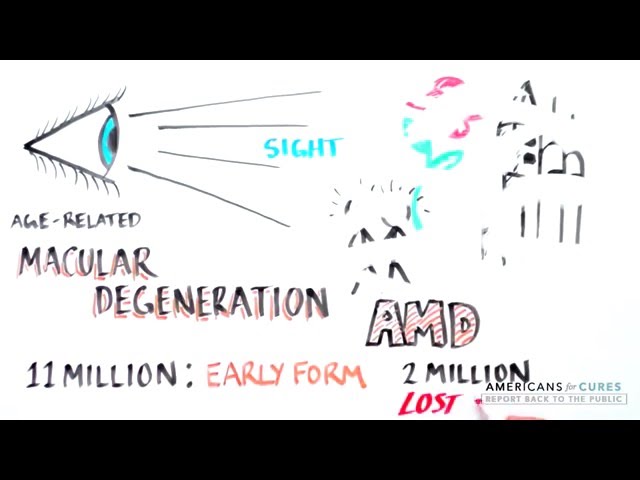 SIGHT
AGE-RELATED
MACULAR
DEGENERATION
AMD
11 MILLION: EARLY FORM
2 MILLION
LOST
AMERICANS for CURES
REPORT BACK TO THE PUBLIC